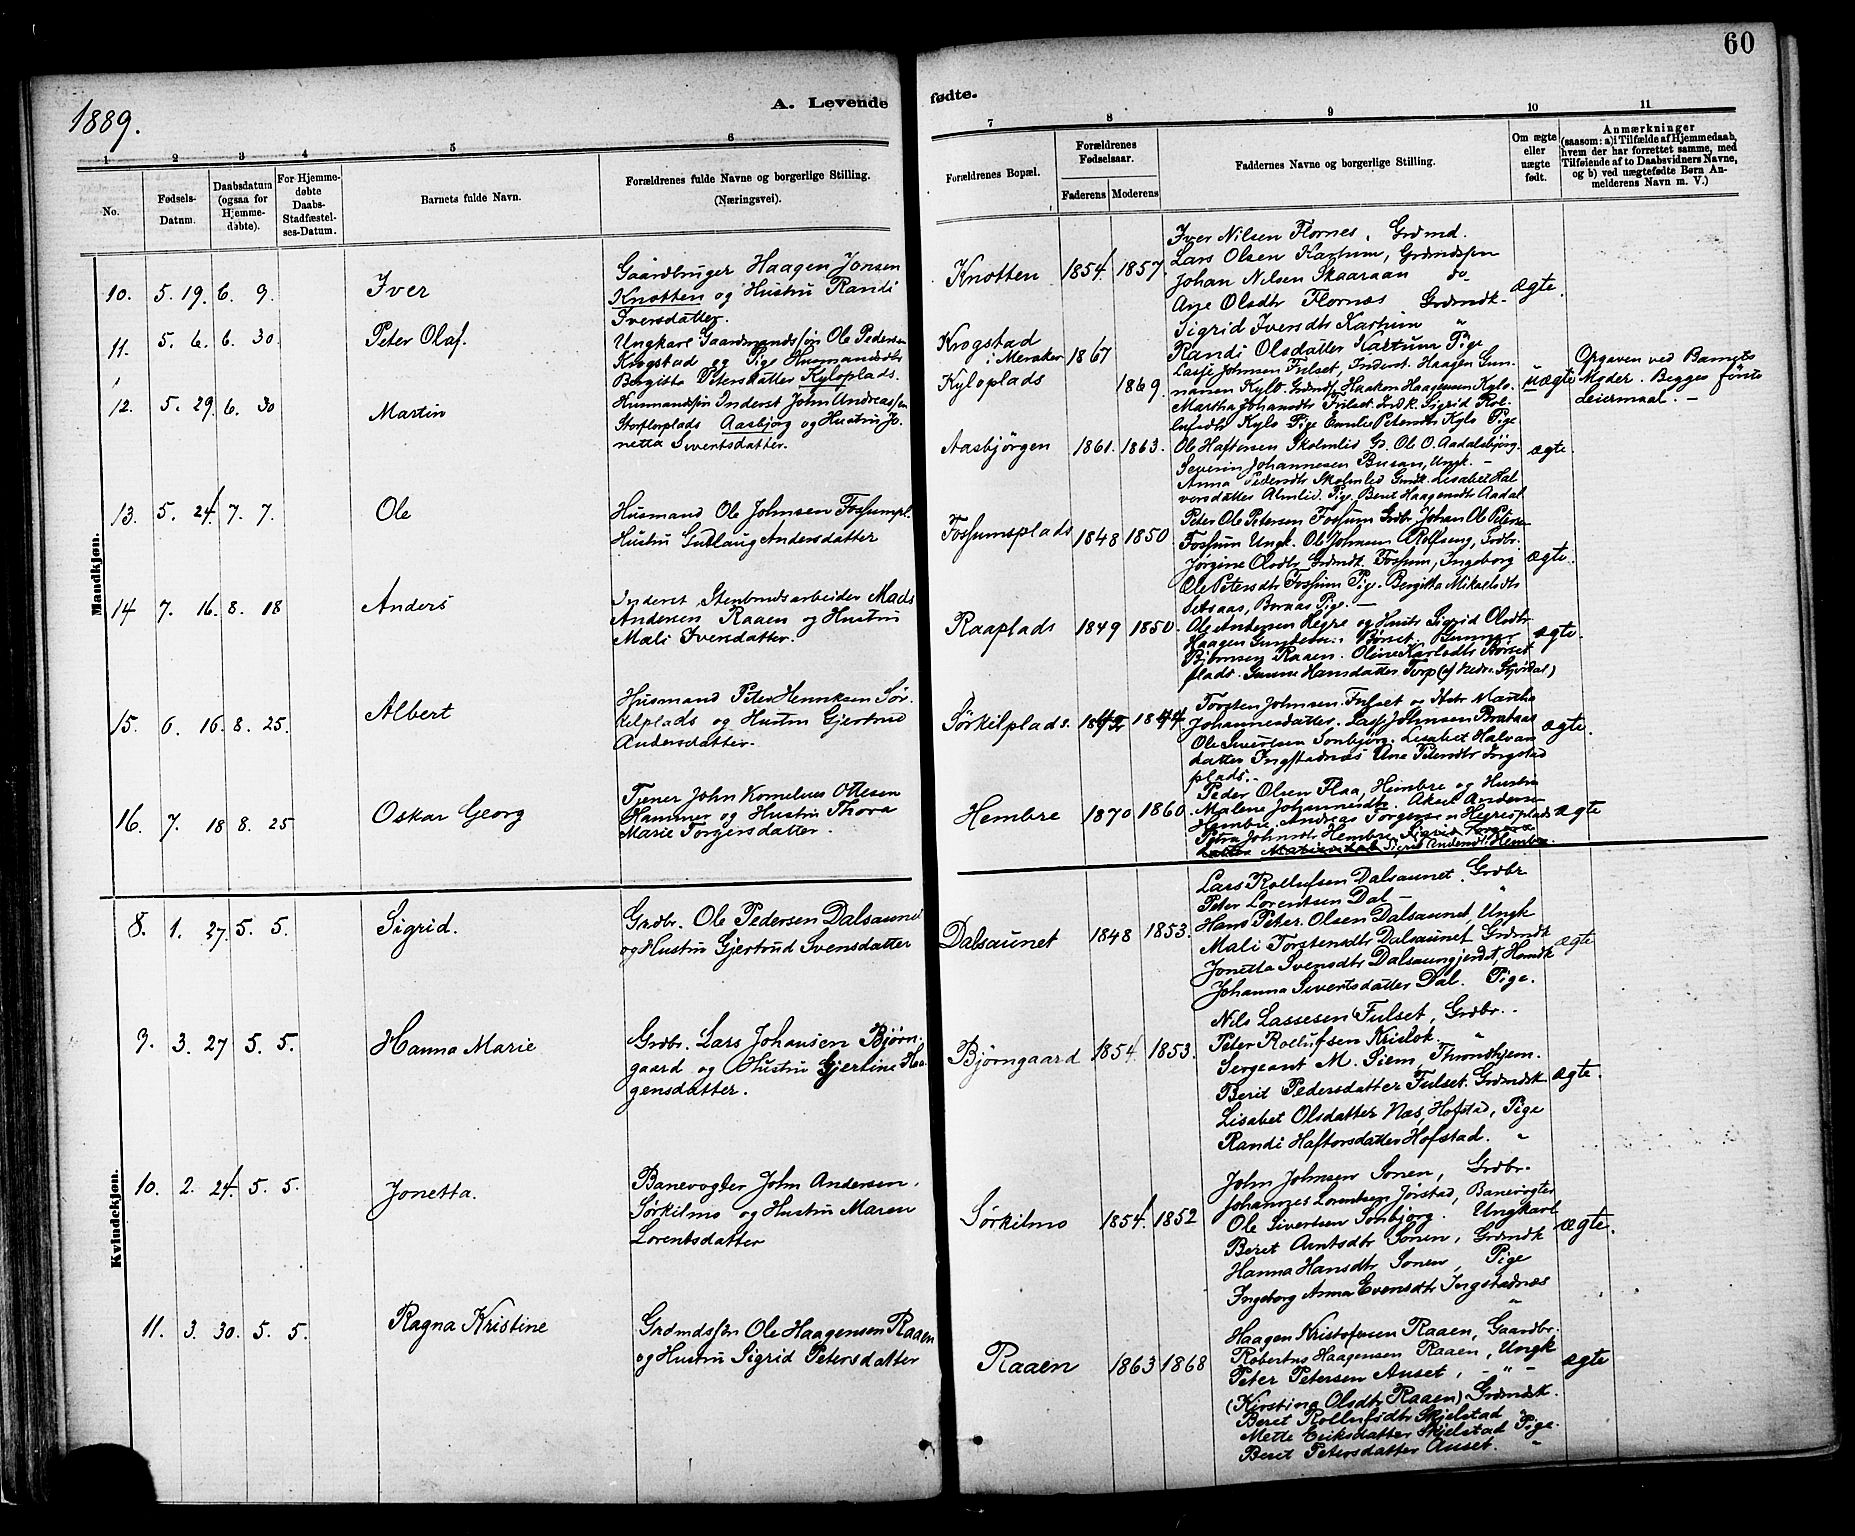 60
1889.
A. Levende fødte.
1 2 3 4 5 6 7 8 9 10 11
No.
Fødsels-
Datum.
Daabsdatum
(ogsaa for
Hjemme-
døbte).
For Hjemme-
døbte
Daabs-
Stadfæstel-
ses-Datum.
Barnets fulde Navn.
Forældrenes fulde Navne og borgerlige Stilling.
(Næringsvei).
Forældrenes Bopæl.
Forældrenes
Fødselsaar.
Faderens. Moderens.
Faddernes Navne og borgerlige Stilling.
Om ægte
eller
uægte
født.
Anmærkninger
(saasom: a) i Tilfælde af Hjemmedaab,
hvem der har forrettet samme, med
Tilføiende af to Daabsvidners Navne,
og b) ved uægtefødte Børn An-
melderens Navn m. V.)
Mandkjøn.
10. 5. 19. 6. 9. Iver
Gaardbruger Haagen Jonsen
Knotten og Hustru Randi
Iversdatter.
Knotten 1854. 1857.
Iver Nilsen Flornes, Grdmd.
Lars Olsen Karhum, Grdmdssøn
Johan Nilsen Skaaraan do
Ane Olsdtr Flornæs Grdmdk.
Sigrid Iversdtr Karhum "
Randi Olsdatter Kartum Pige
ægte
11. 5. 6. 6. 30 Peter Olaf.
Ungkarl Gaardmandssøn Ole Pedersen
Krogstad og Pige Husmandsdtr
Bergitta Petersdatter Kyloplads.
Krogstad
i Meraker 1867
Kyloplads 1869.
Lasse Johnsen Fulset, Inderst. Haagen Gun-
nansen Kylo. Grdmdsp. Haakon Haagensen Kylo.
Martha Johansdtr Fulset. Indk. Sigrid Rol-
lufsdtr Kylo Pige Emilie Petersdtr Kylo Pige
uægte
Opgaven ved Barnets
Moder. Begges første
Leiermaal. —
12. 5. 29. 6. 30 Martin
Husmandssøn Inderst John Andreassen
Storflorplads Aasbjørg og Hustru Jo-
netta Sivertsdatter.
Aasbjørgen 1861. 1863.
Ole Haftorsen Skolmlid Gs. Ole O. Aadalsbjørg.
Severin Johannesen Busan, Ungk. —
Anna Pedersdtr Skolmlid Gmdk. Lisabet Hal-
vorsdatter Almlid. Pige. Berit Haagensdtr Aadal
ægte.
13. 5. 24. 7. 7. Ole
Husmand Ole Johnsen Fossumpl.
Hustru Gullaug Andersdatter
Fossumsplads 1848 1850.
Peter Ole Petersen Fossum Grdbr. Johan Ole Peters.
Fossum Ungk. Ole Johnsen Rolfseng, Grdbr.
Jørgine Olsdtr. Grdmdk. Fossum, Ingeborg
Ole Petersdtr Fossum Pige. Bergitta Mikaelsdtr
Setsaas, Bornas Pige. —
ægte.
14 7. 16. 8. 18 Anders
Inderst Stenbrudsarbeider Mads
Andersen Raaen og Hustru
Mali Iversdatter.
Raaplads 1849 1850.
Ole Andersen Hegre og Hustr Sigrid Olsdtr.
Haagen Gundersen Børset. Gunnar
Bjørnsen Raaen. Oline Karlsdtr Børset
plads. Gunne Hansdatter Torp (af Nedre Stjørdal)
ægte.
15. 6. 16. 8. 25. Albert
Husmand Peter Henriksen Sør-
kilplads og Hustru Gjertrud
Andersdatter.
Sørkilplads. 1842 1844.
Torsten Johnsen Fulset og Hstr Martha
Johannesdatter. Lasse Johnsen Brataas
Ole Sivertsen Sonbjørg. Lisabet Halvors
datter Ingstadnæs Ane Petersdtr Ingstad
plads.
ægte.
16. 7. 18 8. 25 Oskar Georg
Tjener John Kornelius Ottesen
Hammer og Hustru Thora
Marie Torgersdatter.
Hembre 1870 1860.
Peder Olsen Flaa, Hembre og Hustru
Malene Johannesdtr. Aksel Andersen
Hembre. Andreas Torgersen Hegresplads
Petra Johnsdtr Hembre.
Sigrid Andersdtr Hembre.
ægte
Kvindekjøn.
8. 1. 27. 5. 5. Sigrid.
Grdbr. Ole Pedersen Dalsaunet
og Hustru Gjertrud Svensdatter
Dalsaunet 1848 1853.
Lars Rollufsen Dalsaunet. Grdbr
Peter Lorentsen Dal — "
Hans Peter Olsen Dalsaunet, Ungk
Mali Torstensdtr Dalsaunet Grdmdk
Jonetta Svensdtr Dalsaungjerdet, Hsmdk
Johanna Sivertsdatter Dal. Pige.
ægte
9. 3. 27 5. 5. Hanna Marie
Grdbr. Lars Johansen Bjørn-
gaard og Hustru Gjertine Haa-
gensdatter.
Bjørngaard 1854. 1853.
Nils Lassesen Fulset, Grdbr.
Peter Rollufsen Krislok. "
Sergeant M. Siem, Throndhjem.
Berit Pedersdatter Fulset. Grdmdsk
Lisabet Olsdatter Næs, Hofstad, Pige
Randi Haftorsdatter Hofstad. "
ægte.
10. 2. 24. 5. 5. Jonetta.
Banevogter John Andersen
Sørkilmo og Hustru Maren
Lorentsdatter
Sørkilmo 1854. 1852
John Johnsen Sonen, Grdbr.
Johannes Lorentsen Jørstad, Banevogter
Ole Sivertsen Sonbjørg. Ungkarl
Beret Arntsdtr Sonen, Grdmdk
Hanna Hansdtr Sonen, Pige
Ingeborg Anna Evensdtr Ingstadnæs
"
ægte.
11. 3. 30. 5. 5. Ragna Kristine
Grdmdssøn Ole Haagensen Raaen
og Hustru Sigrid Petersdatter
Raaen 1863 1868
Haagen Kristofersen Raaen, Gaardbr.
Robertus Haagensen Raaen, Ungk
Peter Petersen Auset, - " -
(Kirstina Olsdtr Raaen) Grdmdk.
Beret Rollufsdtr Skjelstad "
Mette Eriksdatter Skjelstad Pige.
Berit Petersdatter Auset. "
ægte